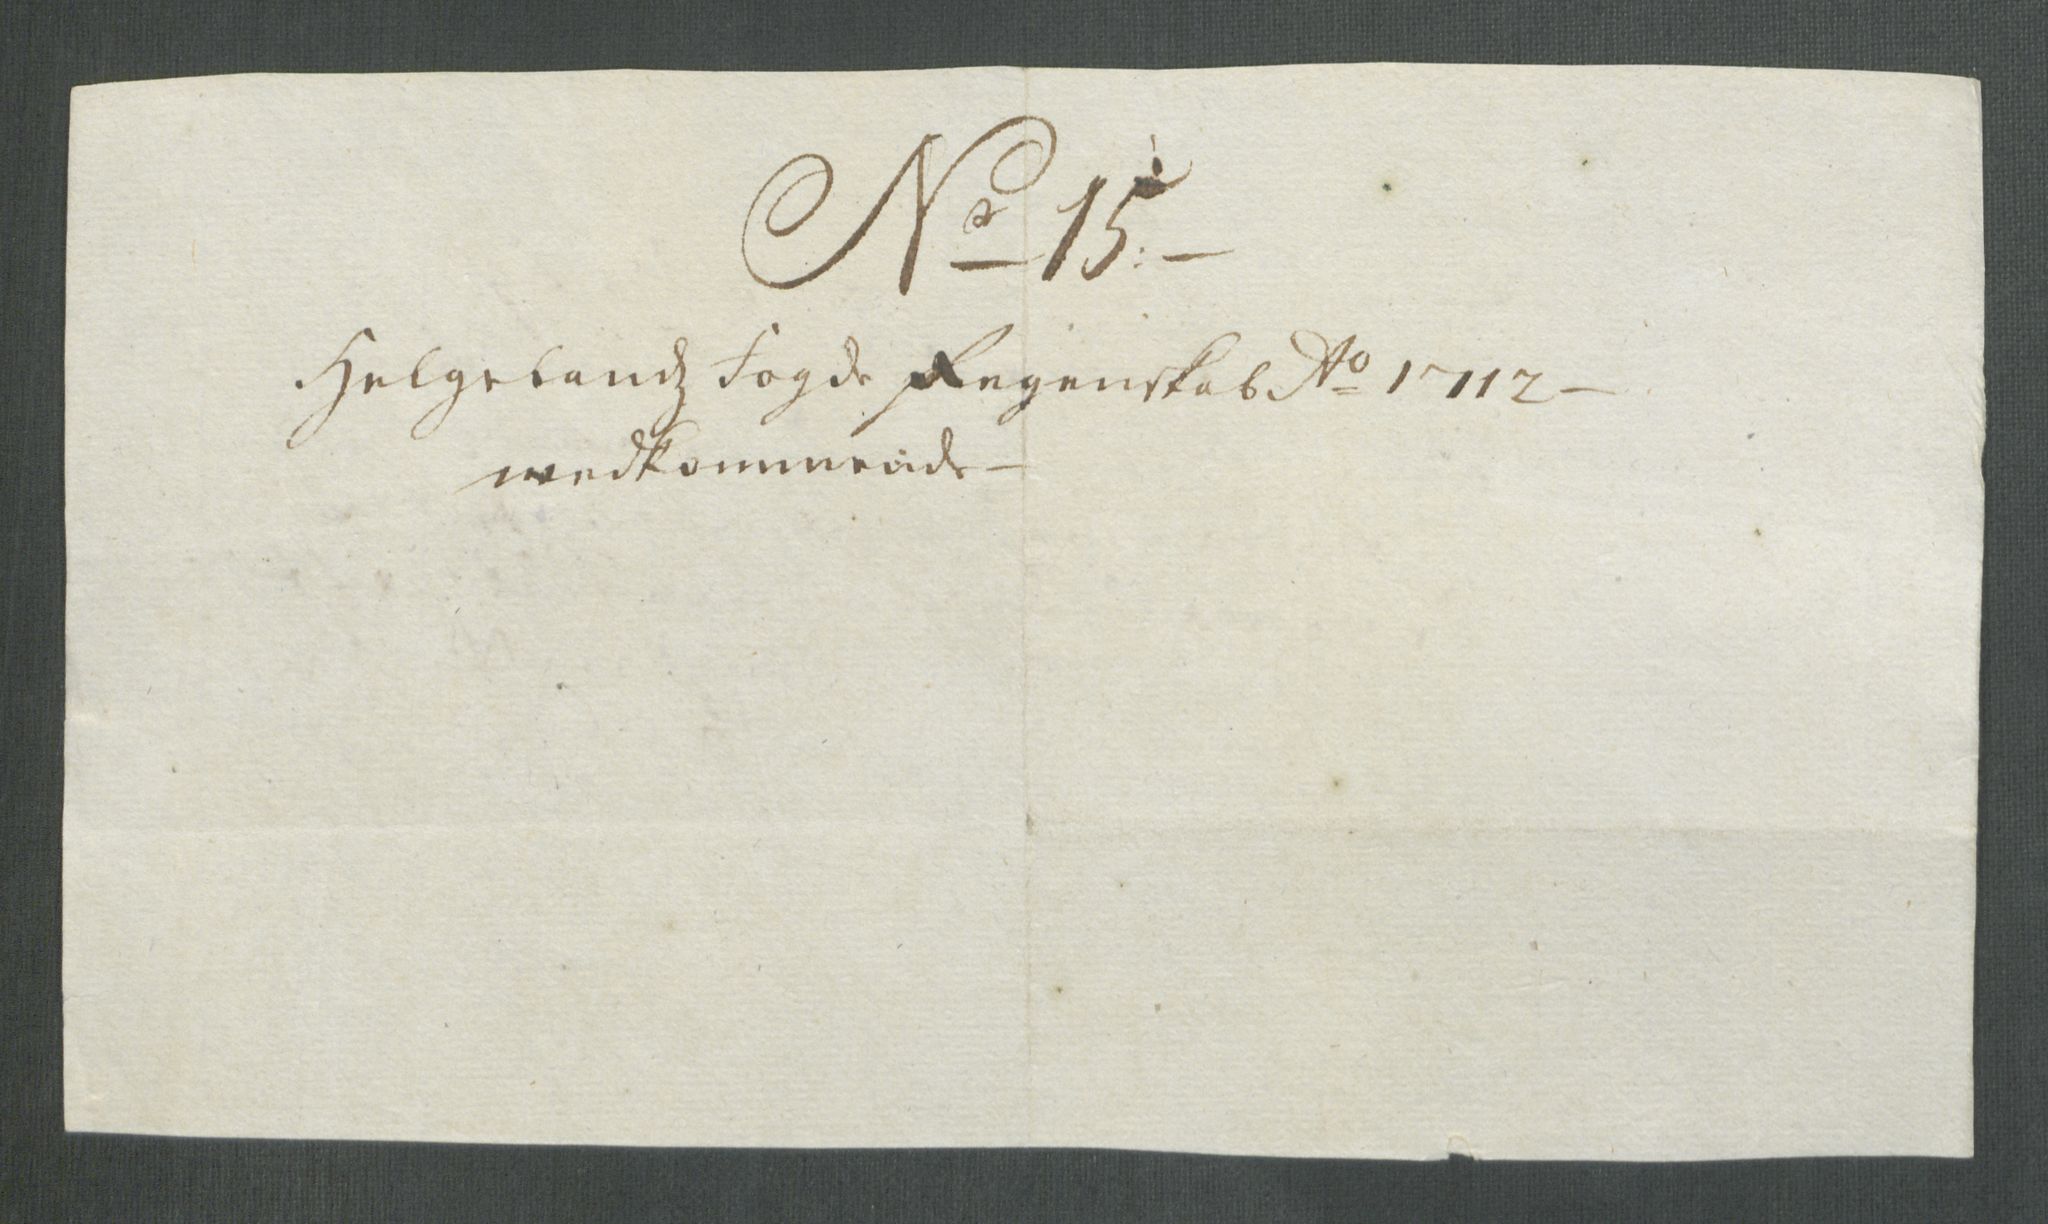 No 15:—
Helgelandz Fogde Regenskab Ao 1712—
wedkommende—